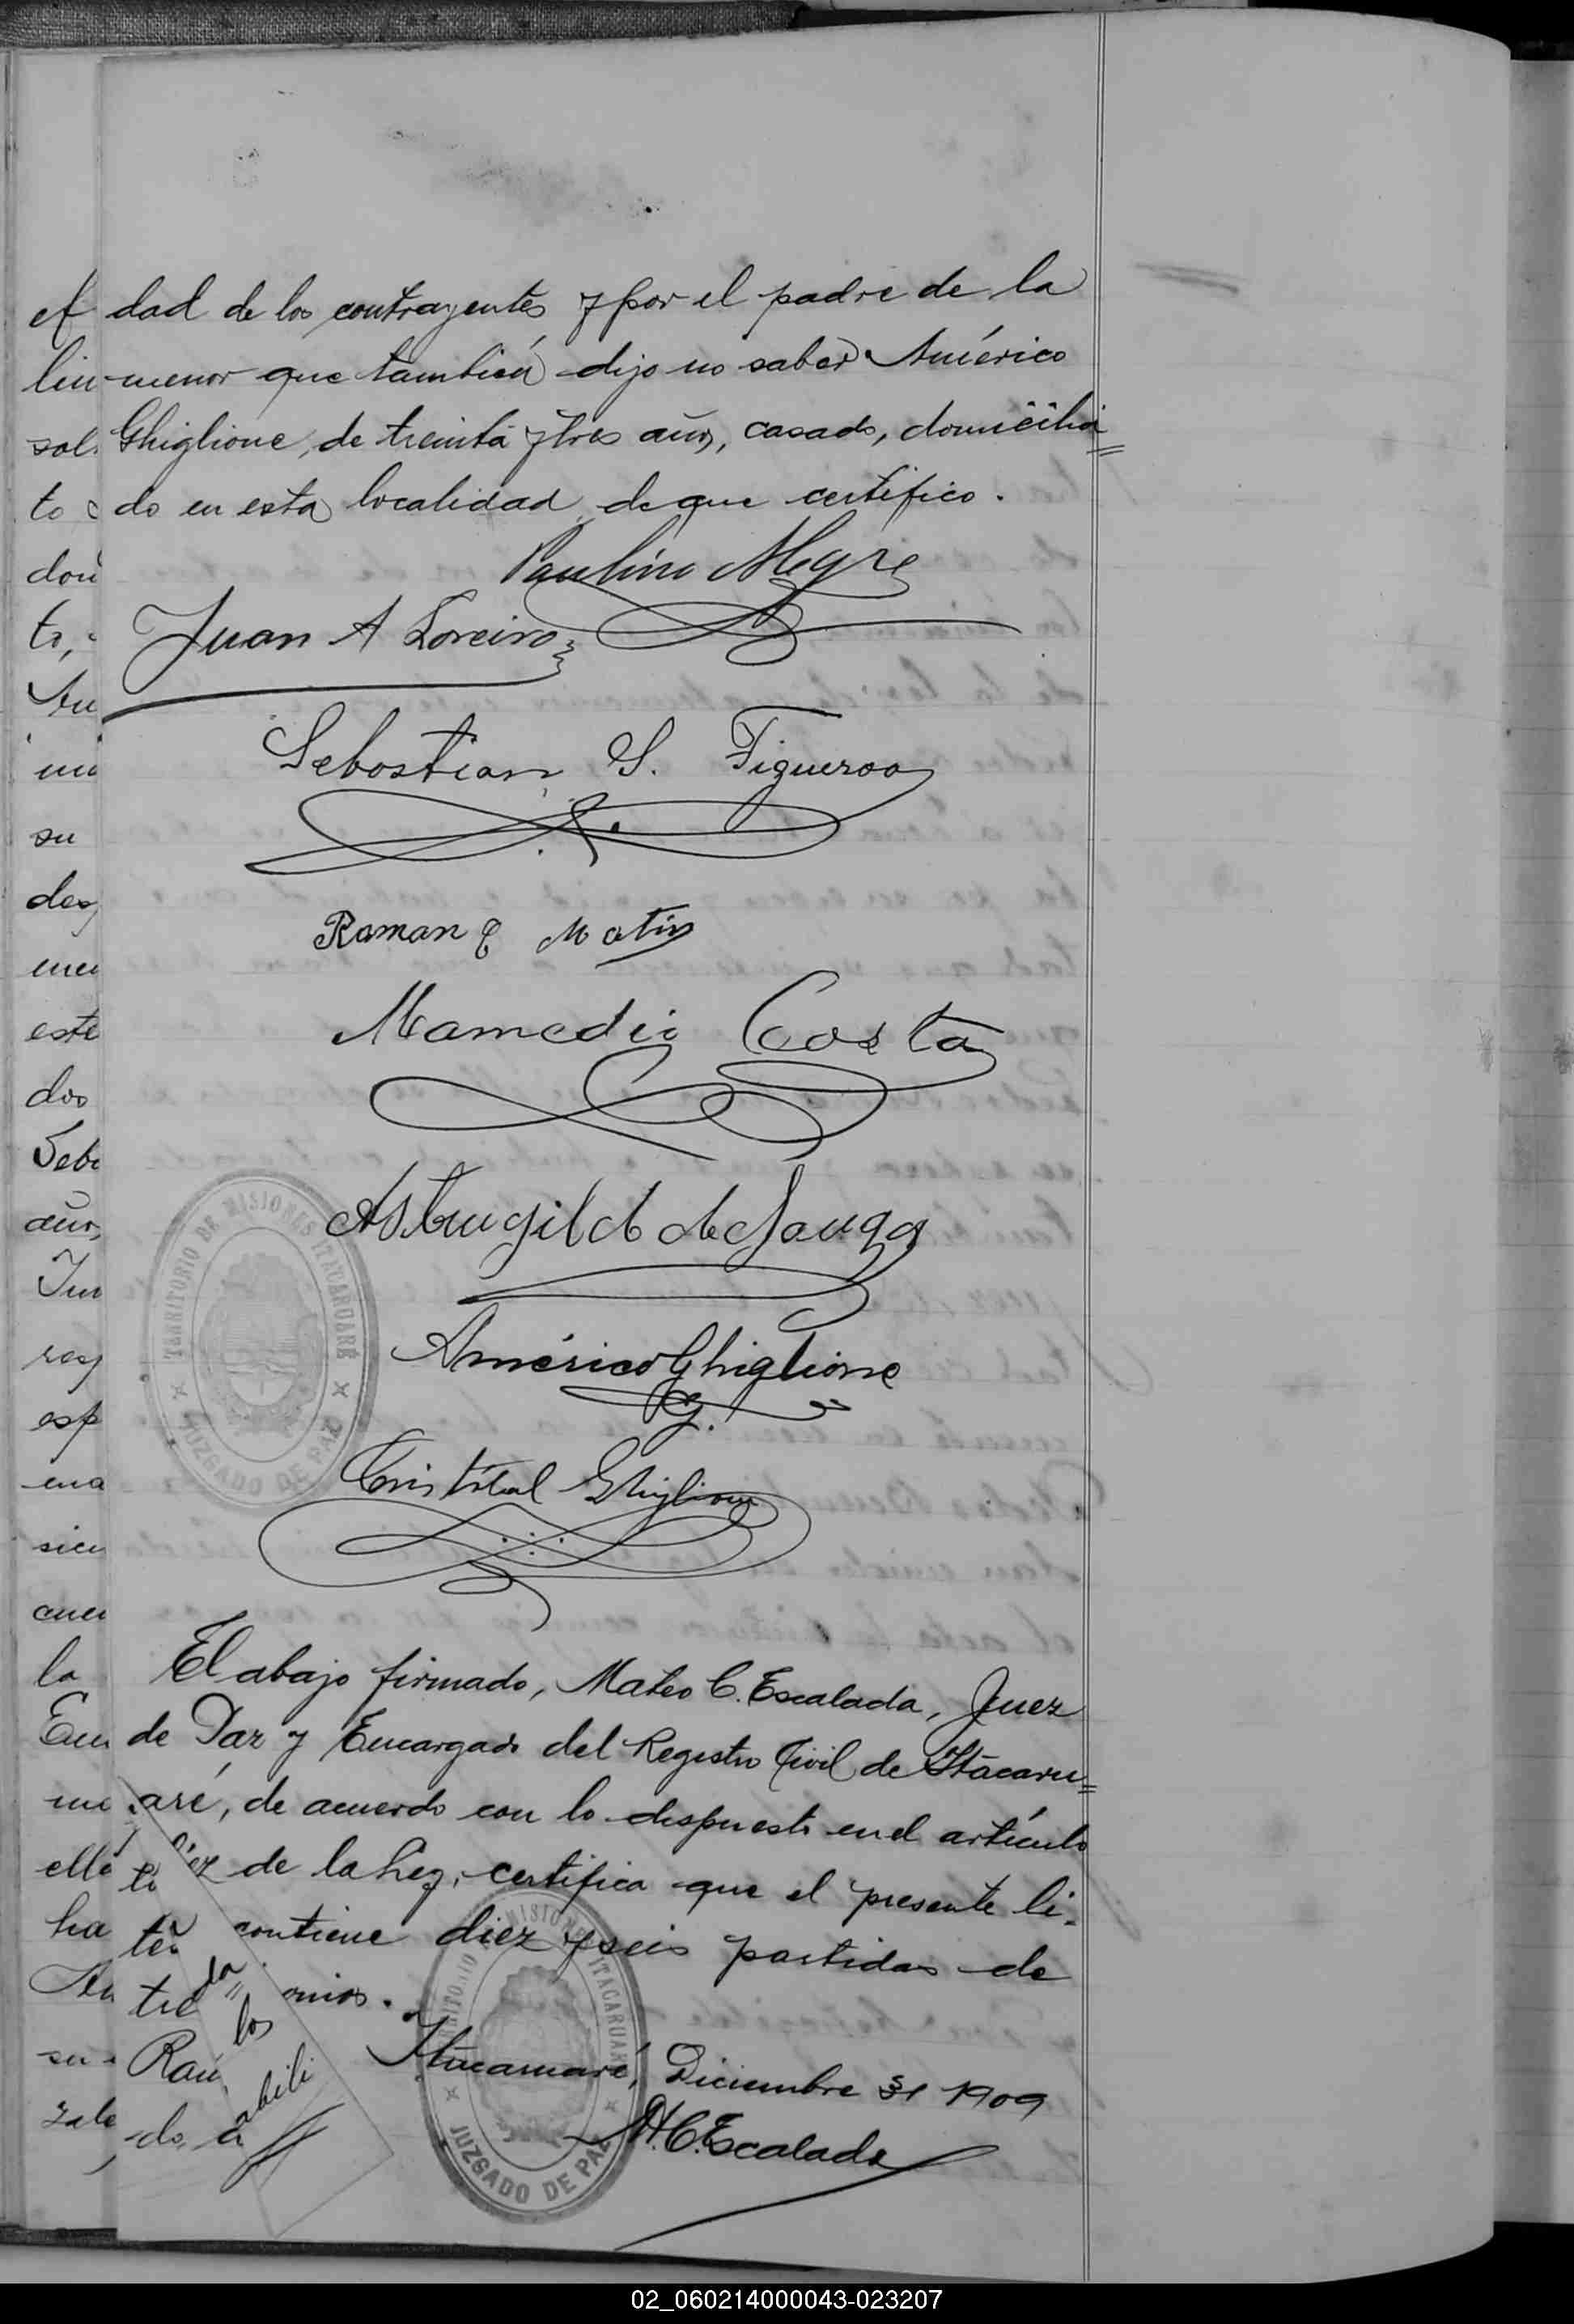 dad de los contrayentes y por el padre de la
menor que tambien dijo no saber Américo
Ghiglione, de treinta y tres años, casado, domicilia
do en esta localidad de que certifico.
Paulino Alegre
Juan A Loreiro
Sebastian S. Figueroa
Raman C Matis
Mamedio Costa
Américo Ghiglione
G.
Cristóbal Ghiglione
TERRITORIO DE MISIONES ITACARUARÉ
JUZGADO DE PAZ
El abajo firmado, Mateo C. Escalada, Juez
de Paz y Encargado del Registro Civil de Itacaru=
aré, de acuerdo con lo dispuesto en el artículo
de la Ley, certifica que el presente li-
contiene diez y seis partidas de
onios.
Itacaruaré, Diciembre 31 1909
M.C. Escalada
JUZGADO DE PAZ
02_060214000043-023207